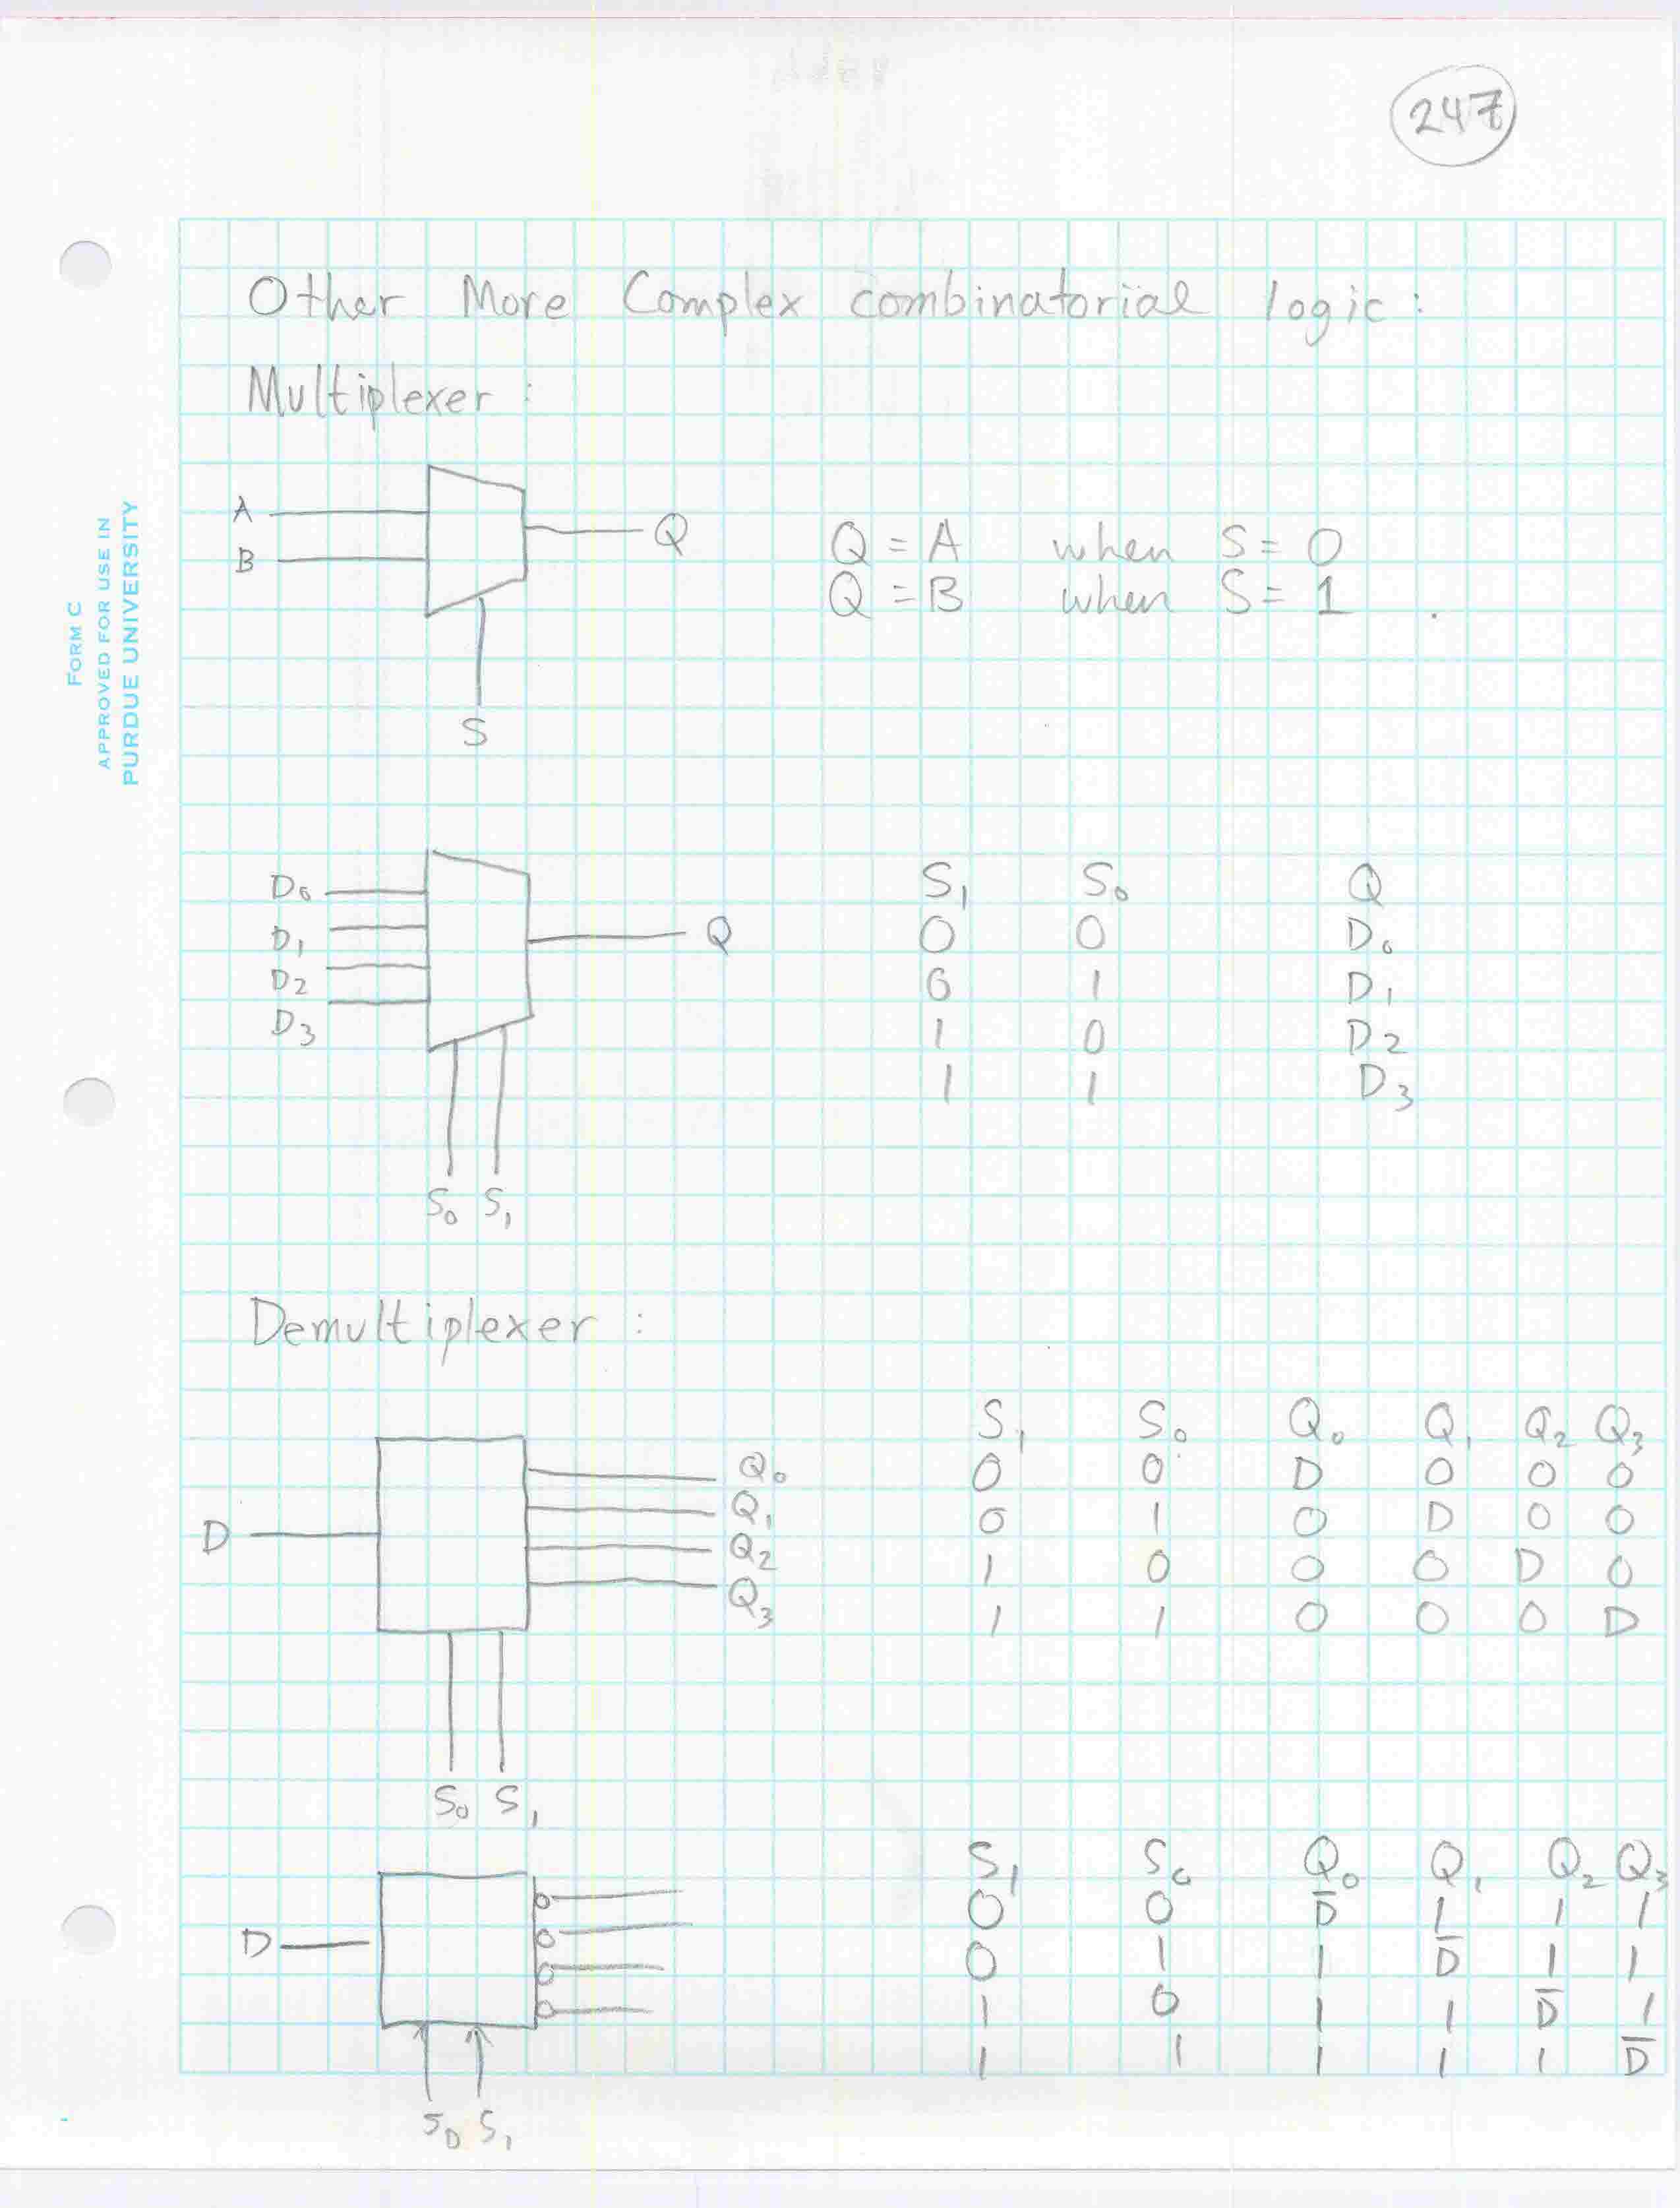 247
FORM C
APPROVED FOR USE IN
PURDUE UNIVERSITY
Other More Complex combinatorial logic :
Multiplexer :
A
B
Q
S
Q = A when S = 0
Q = B when S = 1 .
D₀
D₁
D₂
D₃
Q
S₀ S₁
S₁ S₀ Q
0 0 D₀
0 1 D₁
1 0 D₂
1 1 D₃
Demultiplexer :
D
Q₀
Q₁
Q₂
Q₃
S₀ S₁
S₁ S₀ Q₀ Q₁ Q₂ Q₃
0 0 D 0 0 0
0 1 0 D 0 0
1 0 0 0 D 0
1 1 0 0 0 D
D
S₀ S₁
S₁ S₀ Q₀ Q₁ Q₂ Q₃
0 0 D̅ 1 1 1
0 1 1 D̅ 1 1
1 0 1 1 D̅ 1
1 1 1 1 1 D̅